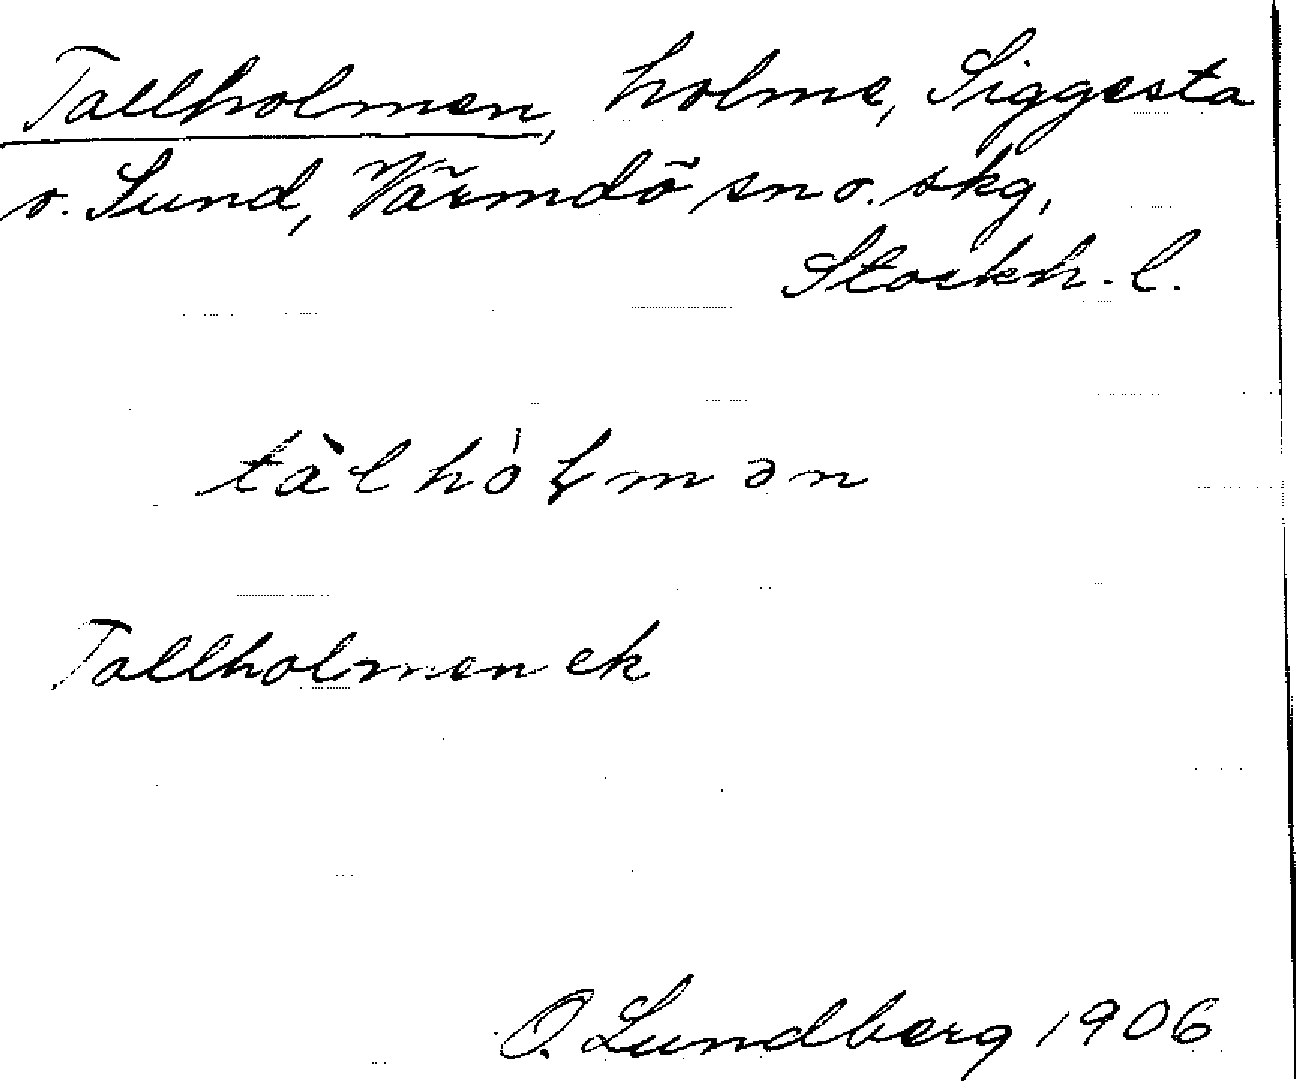 Tallholmen, holme, Siggesta
o. Sund, Värmdö sn o. skg,
Stockh. l.
tàlhólmən
Tallholmen ek
O. Lundberg 1906